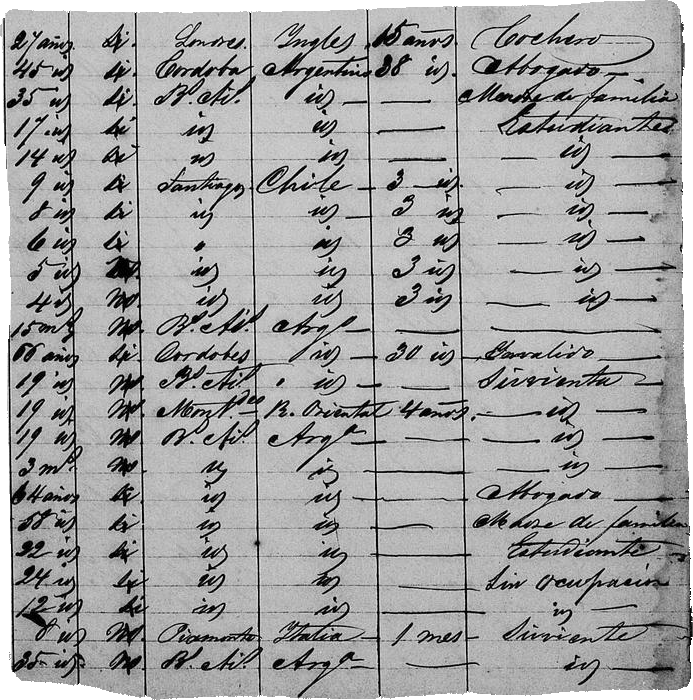 27 años Si. Londres. Ingles. 15 años. Cochero
45 id si. Cordoba Argentino 38 id. Abogado
35 id Si. Bs. Ais. id — — Madre de familia
17 id si id id — Estudiantes
14 id si id id — — id —
9 id si Santiago Chile — 3 — id. — id —
8 id si id id — 3 id — id —
6 id si " id 3 id — id —
5 id id id 3 id — id —
4 id No. id id 3 id — id —
15 ms. No. Bs. Ais. Arga. — — —
66 años Si Cordobes id — 30 id — Invalido
19 id No. Bs. Ais. " id — — Sirvienta
19 id No. Montdeo — R. Oriental 4 años. — id —
19 id No Bs. Ais. Arga. — — — id —
3 ms. No. id id — — id —
64 años Si. id id — — Abogado —
58 id si id id — Madre de familia
22 id si id id — Estudiante —
24 id si id id — Sin ocupacion
12 id si id id — id —
8 id No. Piamonte Italia — 1 mes — Sirviente
35 id. No. Bs. Ais. Arga. — — id —